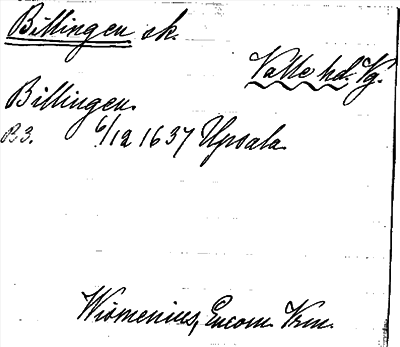 Billingen sk.
Valle hd. Vg.
Billingen.
R3. 6/12 1637 Upsala
Wismenius, Encom. Krm.